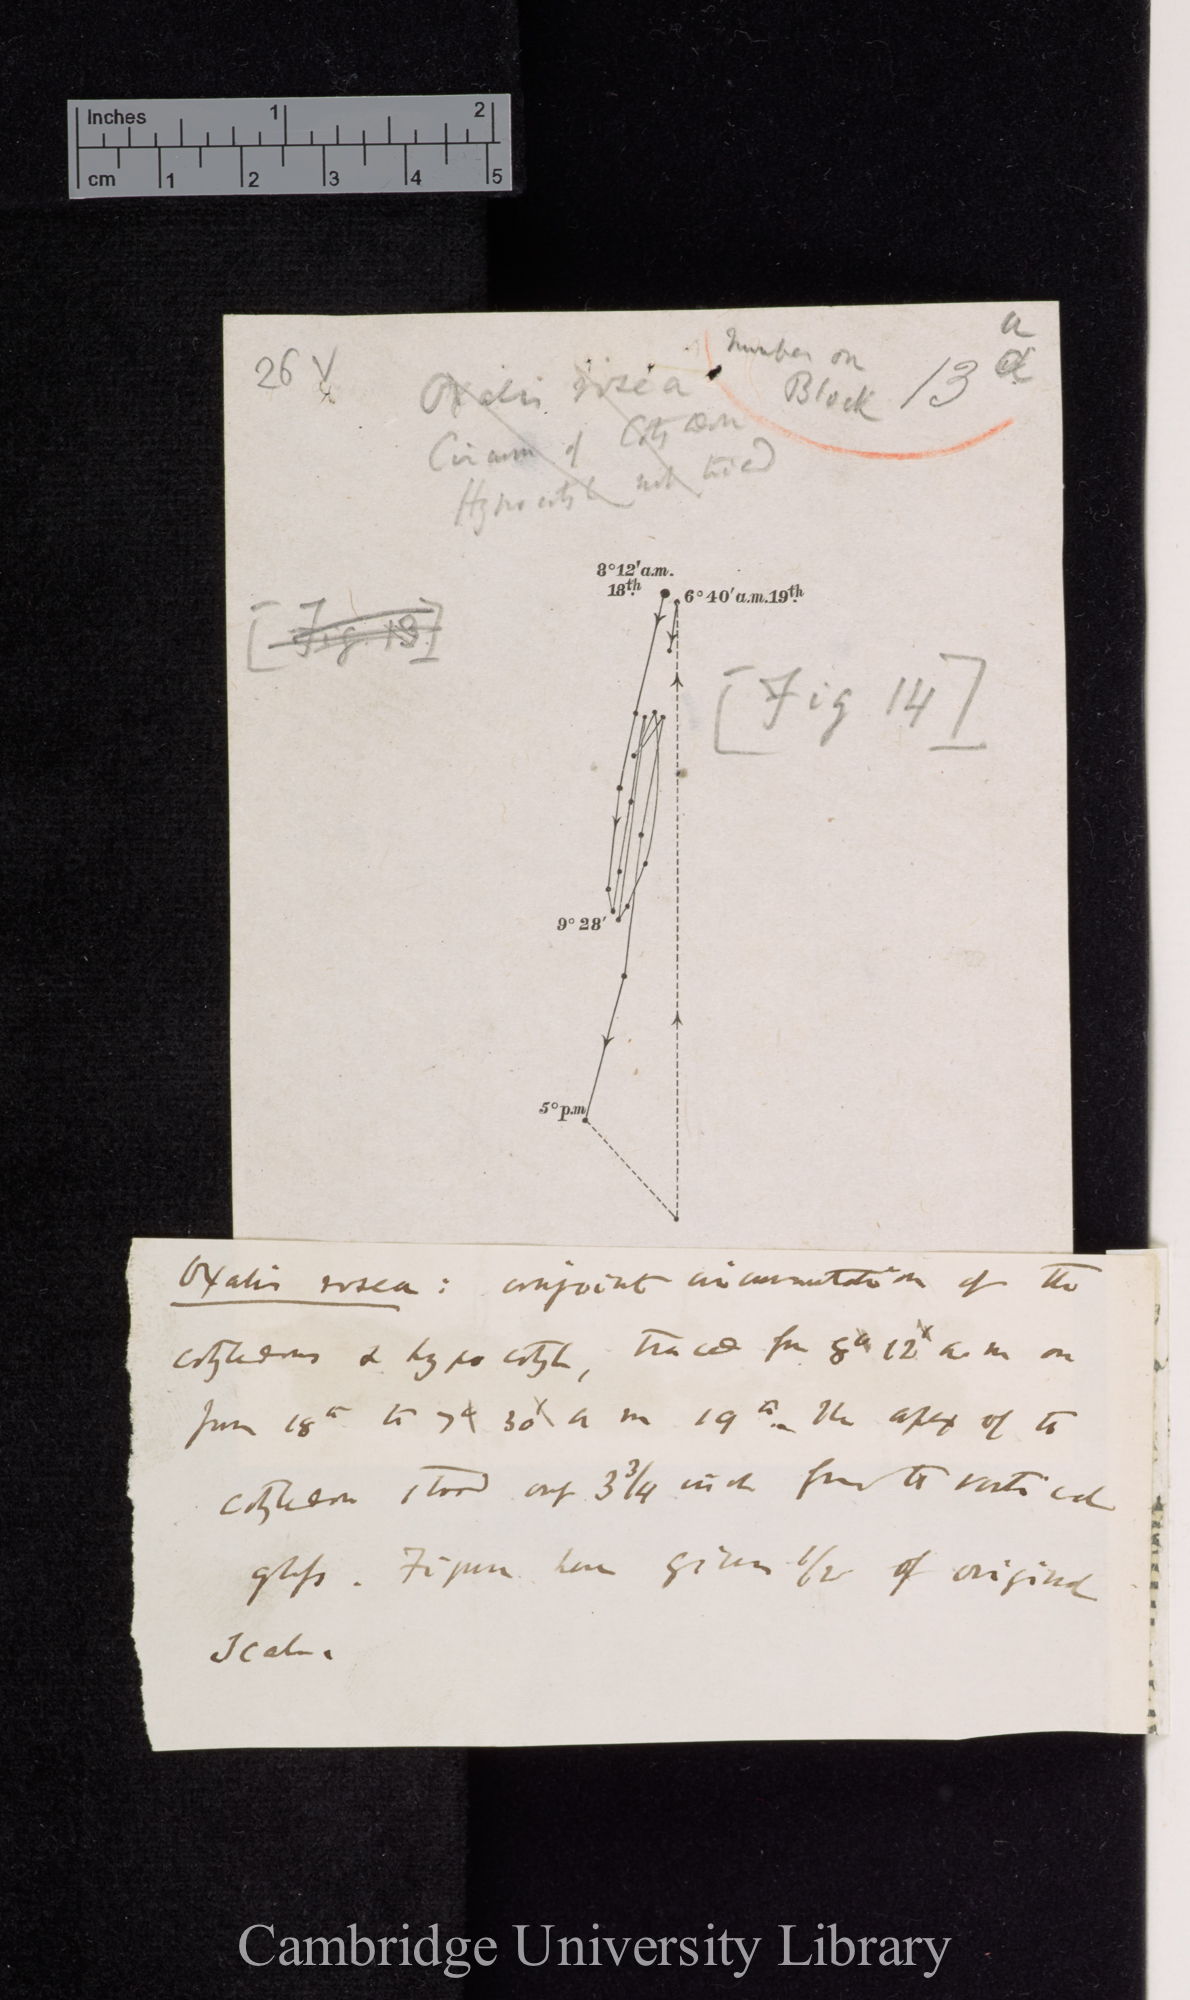 Inches 1 2
cm 1 2 3 4 5
26 V
Number on
Block 13 a
Oxalis rosea
Circum of Cotyledon
Hypocotyl not tried
8°12'a.m.
18th.
6°40'a.m.19th.
[Fig. 13]
[Fig 14]
9°28'
5°p.m
Oxalis rosea: conjoint circumnutation of the
cotyledons & hypocotyl, traced from 8 12 a m on
June 18th to 7 30 a m 19th. The apex of the
cotyledon stood only 3 3/4 inch from the vertical
glass. Figure here given 1/2 of original
Scale.
Cambridge University Library